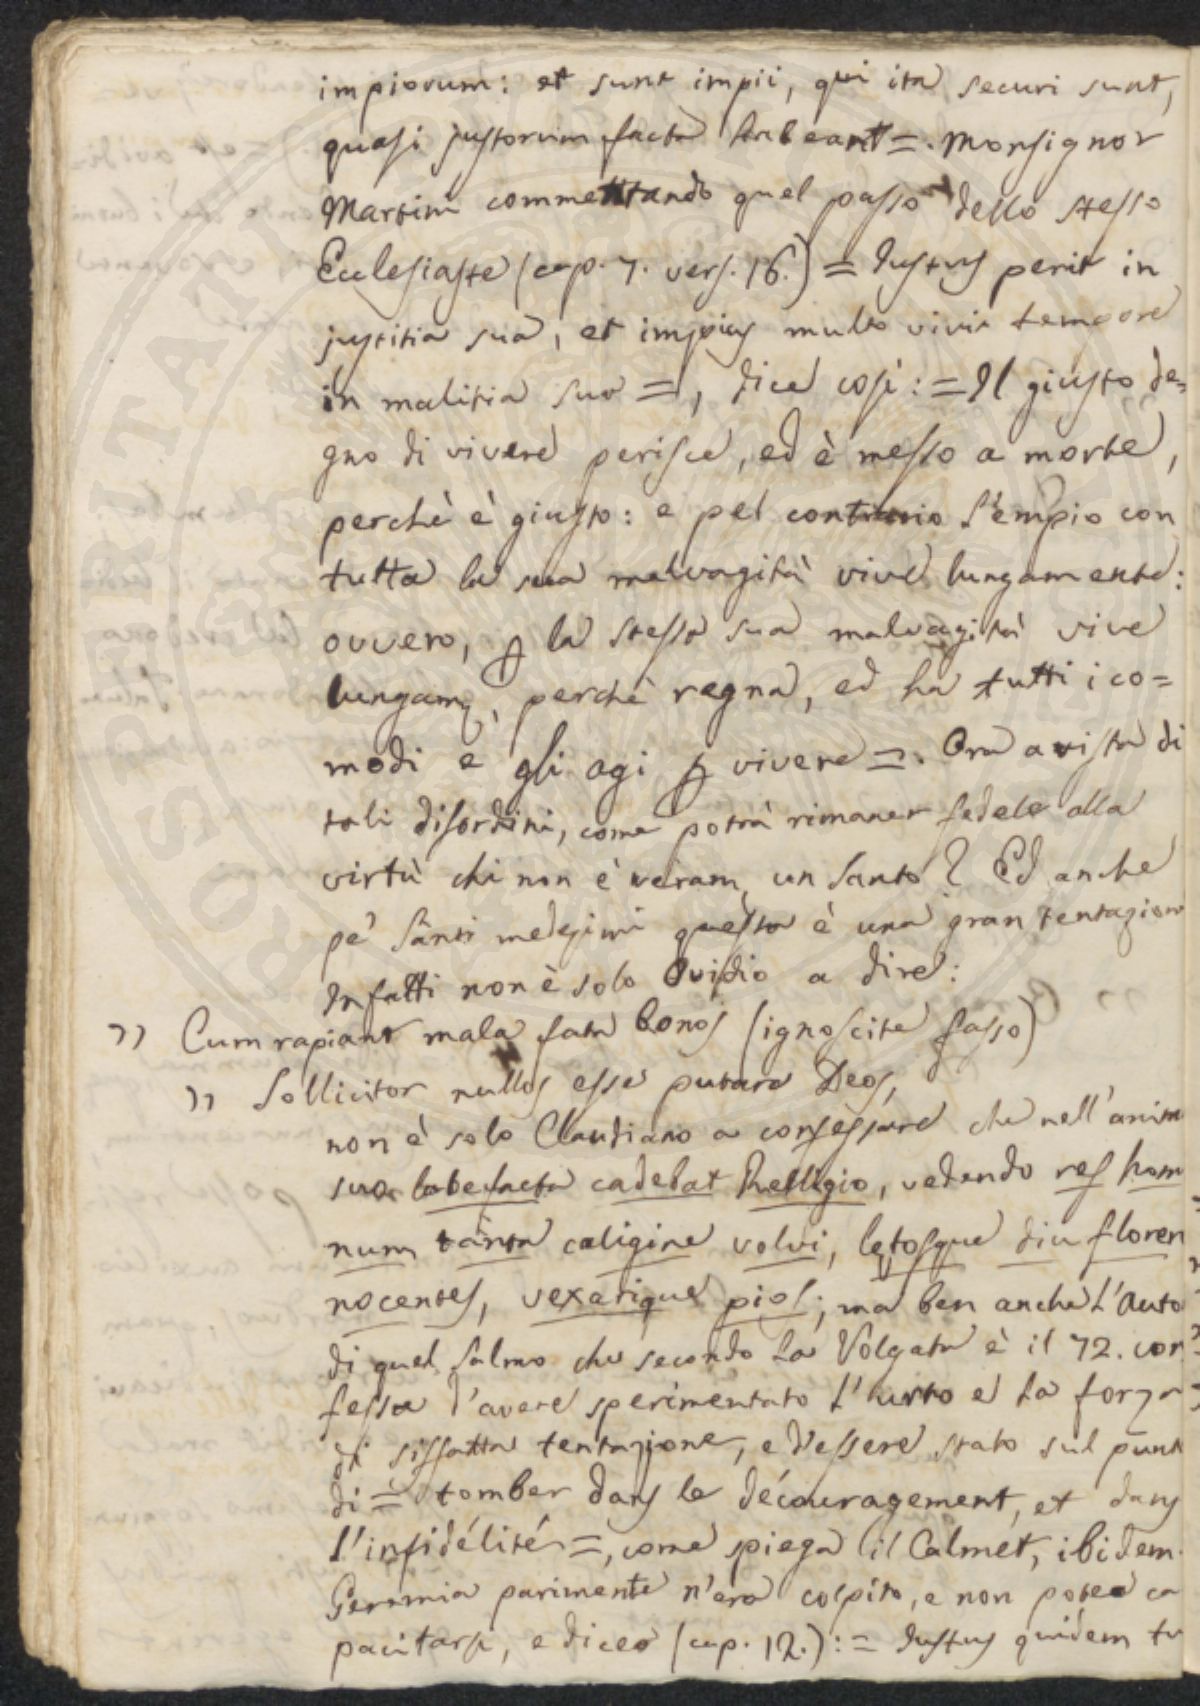 impiorum: et sunt impii, qui ita securi sunt,
quasi justorum facta habeant =. Monsignor
Martini commentando quel passo dello stesso
Ecclesiaste (cap. 7. vers. 16.) = Justus perit in
justitia sua, et impius multo vivit tempore
in malitia sua =, dice così: = Il giusto de=
gno di vivere perisce, ed è messo a morte,
perchè è giusto: e pel contrario l'empio con
tutta la sua malvagità vive lungamente:
ovvero, p la stessa sua malvagità vive
lungamᵉ, perchè regna, ed ha tutti i co=
modi e gli agi p vivere =. Ora a vista di
tali disordini, come potrà rimaner fedele alla
virtù chi non è veramᵉ un Santo? Ed anche
pe' Santi medesimi questa è una gran tentazione
Infatti non è solo Ovidio a dire:
" Cum rapiant mala fata bonos (ignoscite fasso)
" Sollicitor nullos esse putare Deos,
non è solo Claudiano a confessare che nell'anim
suo labefacta cadebat Relligio, vedendo res homi
num tanta caligine volvi, lętosque diu floren
nocentes, vexarique pios; ma ben anche l'Auto
di quel Salmo che secondo la Volgata è il 72. con
fessa d'avere sperimentato l'urto e la forza
di siffatta tentazione, e d'essere stato sul punt
di = tomber dans le décauragement, et dans
l'infidélité =, come spiega il Calmet, ibidem.
Geremia parimente n'era colpito, e non potea ca
pacitarsi, e dicea (cap. 12.): = Justus quidem tu
PROSPERITATI